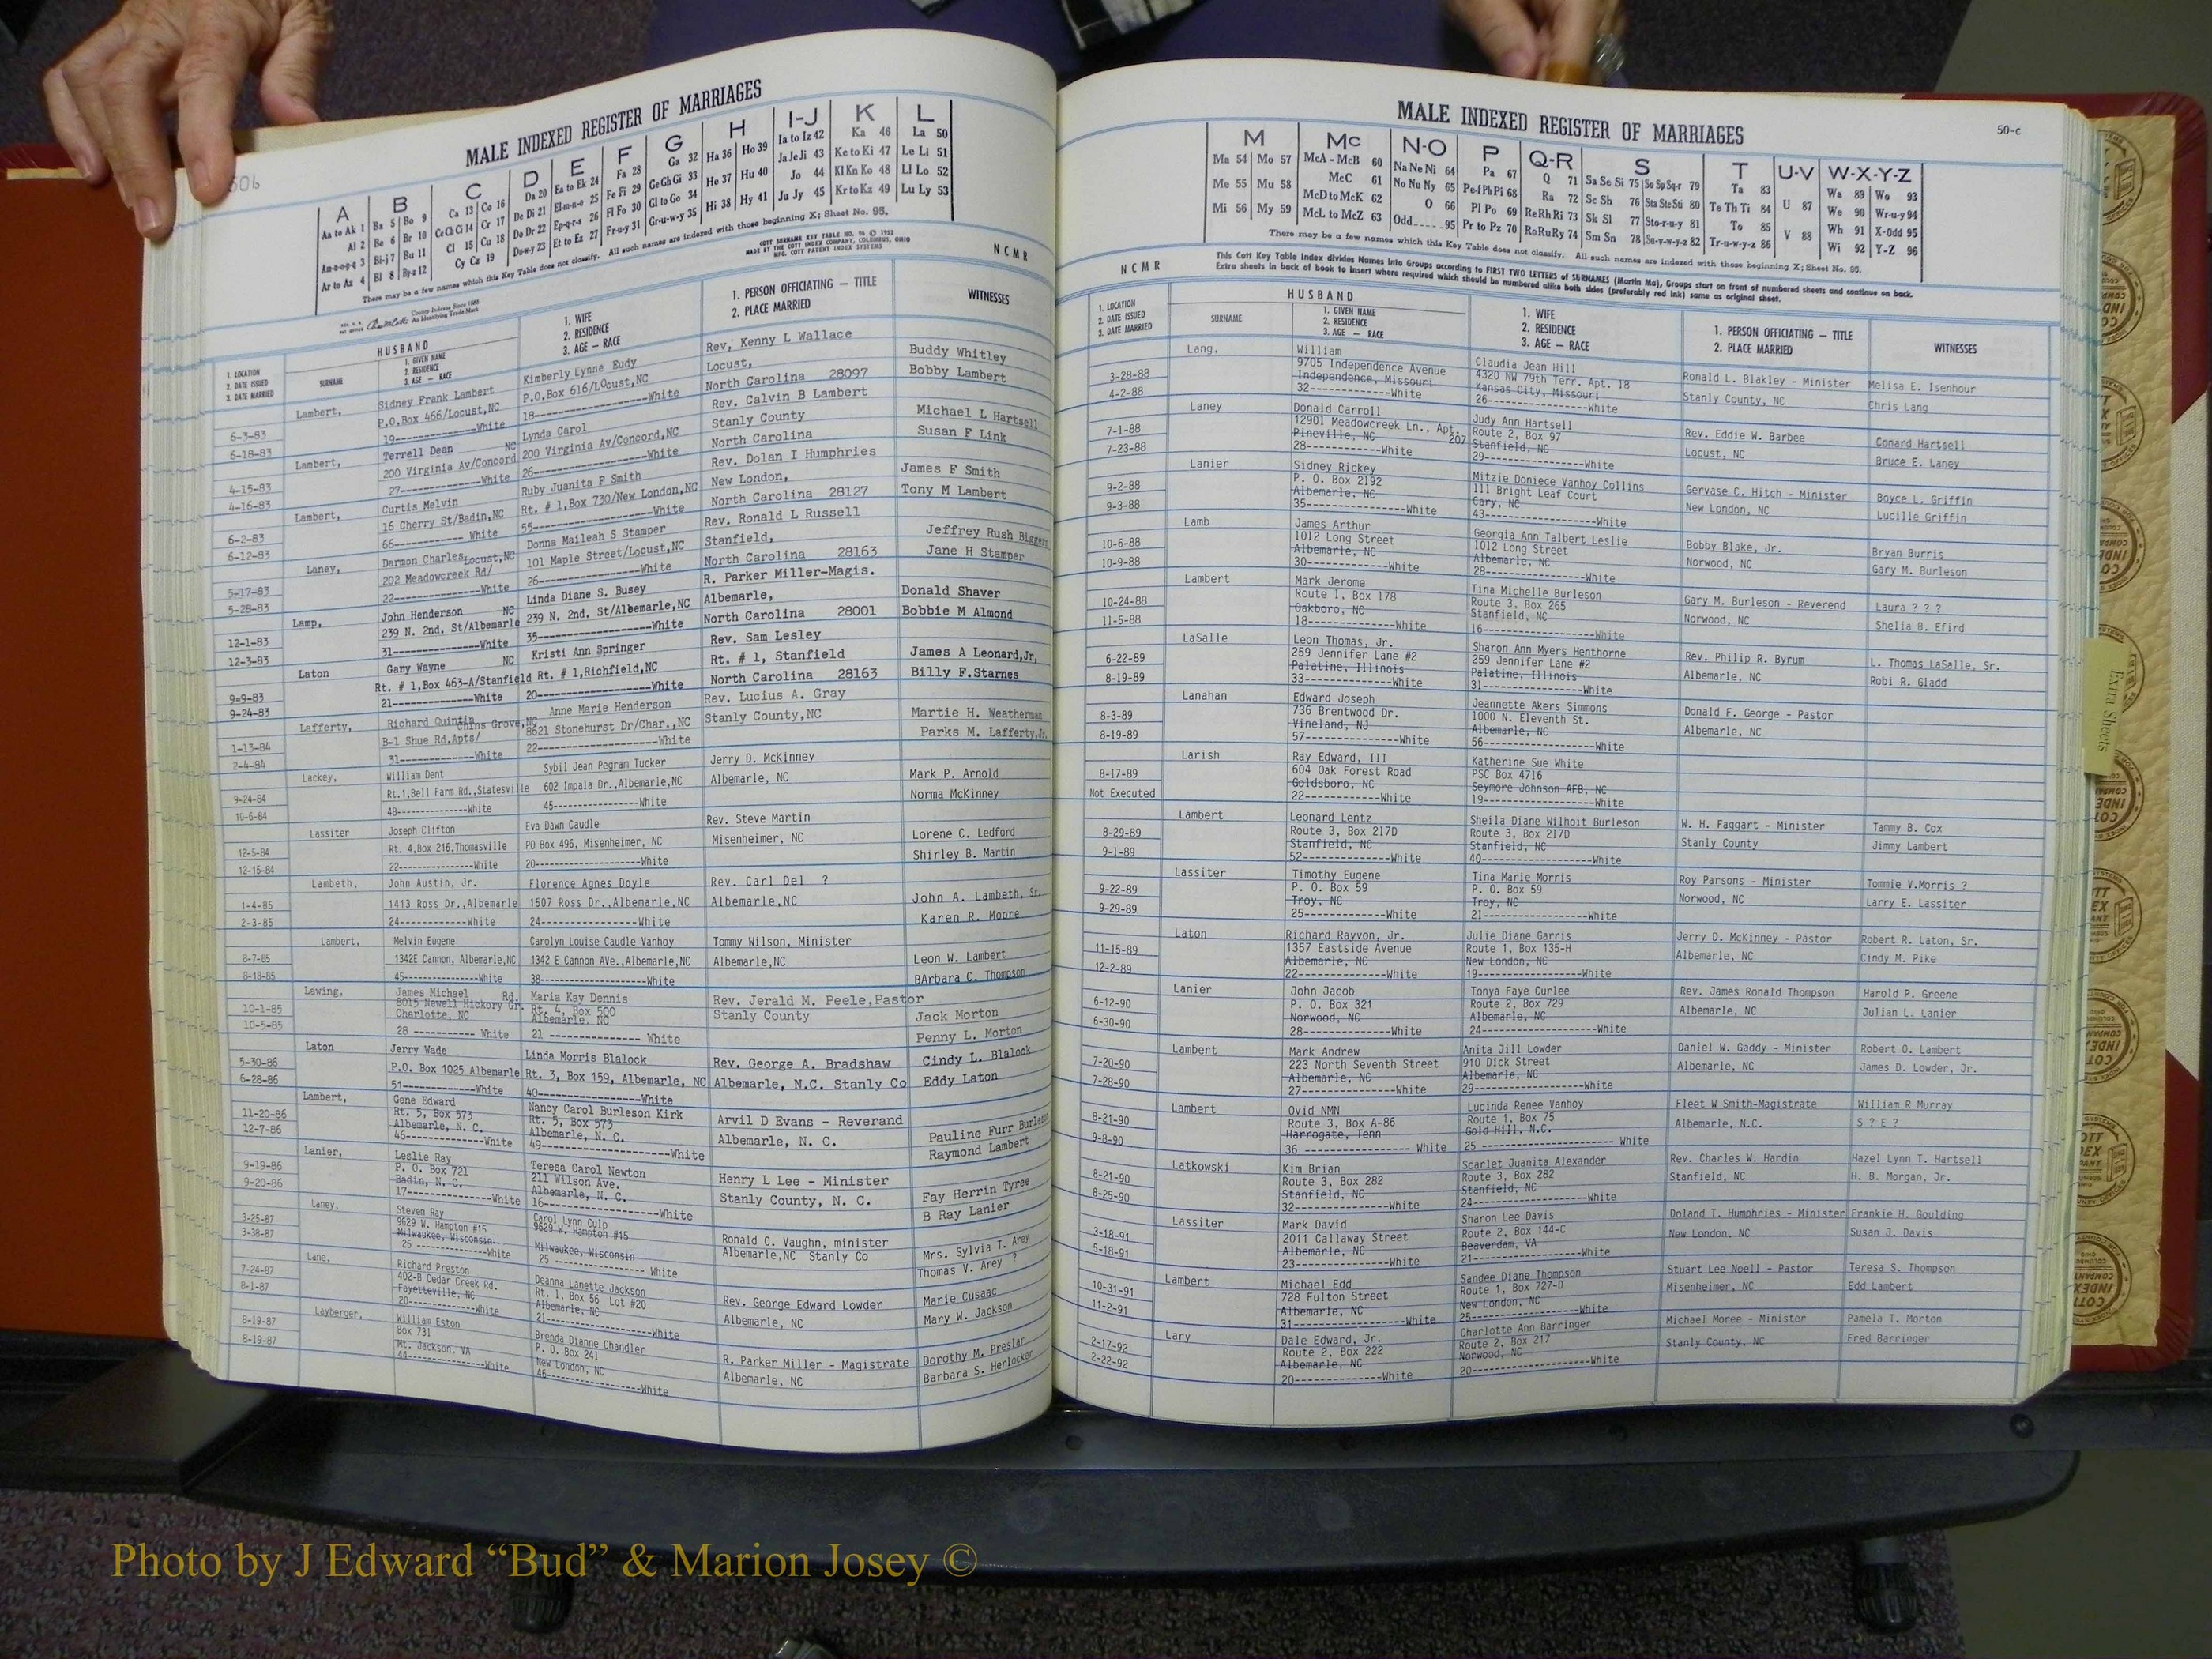 50b
MALE INDEXED REGISTER OF MARRIAGES
A B C D E F G H I-J K L
Aa to Ak 1 Ba 5 Bo 9 Ca 13 Co 16 Da 20 Ea to Ek 24 Fa 28 Ga 32 Ha 36 Ho 39 Ia to Iz 42 Ka 46 La 50
Al 2 Be 6 Br 10 Ce Ch Ci 14 Cr 17 De Di 21 El-m-n-o 25 Fe Fi 29 Ge Gh Gi 33 He 37 Hu 40 Ja Je Ji 43 Ke to Ki 47 Le Li 51
Am-n-o-p-q 3 Bi-j 7 Bu 11 Cl 15 Cu 18 Do Dr 22 Ep-q-r-s 26 Fl Fo 30 Gl to Go 34 Hi 38 Hy 41 Jo 44 Kl Kn Ko 48 Ll Lo 52
Ar to Az 4 Bl 8 By-z 12 Cy Cz 19 Du-w-y 23 Et to Ez 27 Fr-u-y 31 Gr-u-w-y 35 Ju Jy 45 Kr to Kz 49 Lu Ly 53
There may be a few names which this Key Table does not classify. All such names are indexed with those beginning X; Sheet No. 95.
County Indexes Since 1888
An Identifying Trade Mark
COTT SURNAME KEY TABLE NO. 96 © 1952
MADE BY THE COTT INDEX COMPANY, COLUMBUS, OHIO
MFG. COTT PATENT INDEX SYSTEMS
NCMR
1. LOCATION
2. DATE ISSUED
3. DATE MARRIED
HUSBAND
SURNAME
1. GIVEN NAME
2. RESIDENCE
3. AGE — RACE
1. WIFE
2. RESIDENCE
3. AGE — RACE
1. PERSON OFFICIATING — TITLE
2. PLACE MARRIED
WITNESSES
Lambert, Sidney Frank Lambert Kimberly Lynne Eudy Rev, Kenny L Wallace Buddy Whitley
6-3-83 P.O.Box 466/Locust,NC P.O.Box 616/Locust,NC Locust, Bobby Lambert
6-18-83 19-------------White 18-------------White North Carolina 28097
Lambert, Terrell Dean NC Lynda Carol Rev. Calvin B Lambert Michael L Hartsell
4-15-83 200 Virginia Av/Concord 200 Virginia Av/Concord,NC Stanly County Susan F Link
4-16-83 27-------------White 26-------------White North Carolina
Lambert, Curtis Melvin Ruby Juanita F Smith Rev. Dolan I Humphries James F Smith
6-2-83 16 Cherry St/Badin,NC Rt. # 1,Box 730/New London,NC New London, Tony M Lambert
6-12-83 66----------- White 55-------------White North Carolina 28127
Laney, Darmon Charles Locust,NC Donna Maileah S Stamper Rev. Ronald L Russell Jeffrey Rush Biggers
5-17-83 202 Meadowcreek Rd/ 101 Maple Street/Locust,NC Stanfield, Jane H Stamper
5-28-83 22-------------White 26-------------White North Carolina 28163
Lamp, John Henderson NC Linda Diane S. Busey R. Parker Miller-Magis. Donald Shaver
12-1-83 239 N. 2nd. St/Albemarle 239 N. 2nd. St/Albemarle,NC Albemarle, Bobbie M Almond
12-3-83 31-------------White 35-------------White North Carolina 28001
Laton Gary Wayne NC Kristi Ann Springer Rev. Sam Lesley James A Leonard,Jr,
9=9-83 Rt. # 1,Box 463-A/Stanfield Rt. # 1,Richfield,NC Rt. # 1, Stanfield Billy F.Starnes
9-24-83 21-------------White 20-------------White North Carolina 28163
Lafferty, Richard Quintin Chins Grove,NC Anne Marie Henderson Rev. Lucius A. Gray Martie H. Weatherman
1-13-84 B-1 Shue Rd.Apts/ 8621 Stonehurst Dr/Char.,NC Stanly County,NC Parks M. Lafferty,Jr.
2-4-84 31-------------White 22-------------White
Lackey, William Dent Sybil Jean Pegram Tucker Jerry D. McKinney Mark P. Arnold
9-24-84 Rt.1,Bell Farm Rd.,Statesville 602 Impala Dr.,Albemarle,NC Albemarle, NC Norma McKinney
10-6-84 48-------------White 45-------------White
Lassiter Joseph Clifton Eva Dawn Caudle Rev. Steve Martin Lorene C. Ledford
12-5-84 Rt. 4,Box 216,Thomasville PO Box 496, Misenheimer, NC Misenheimer, NC Shirley B. Martin
12-15-84 22-------------White 20-------------White
Lambeth, John Austin, Jr. Florence Agnes Doyle Rev. Carl Del ? John A. Lambeth, Sr.
1-4-85 1413 Ross Dr.,Albemarle 1507 Ross Dr.,Albemarle,NC Albemarle,NC Karen R. Moore
2-3-85 24-------------White 24-------------White
Lambert, Melvin Eugene Carolyn Louise Caudle Vanhoy Tommy Wilson, Minister Leon W. Lambert
8-7-85 1342E Cannon, Albemarle,NC 1342 E Cannon AVe.,Albemarle,NC Albemarle,NC BArbara C. Thompson
8-18-85 45-------------White 38-------------White
Lawing, James Michael Rd. Maria Kay Dennis Rev. Jerald M. Peele,Pastor Jack Morton
10-1-85 8015 Newell Hickory Gr. Rt. 4, Box 500 Stanly County Penny L. Morton
10-5-85 Charlotte, NC Albemarle, NC
28 ----------- White 21 ------------- White
Laton Jerry Wade Linda Morris Blalock Rev. George A. Bradshaw Cindy L. Blalock
5-30-86 P.O. Box 1025 Albemarle Rt. 3, Box 159, Albemarle, NC Albemarle, N.C. Stanly Co Eddy Laton
6-28-86 51-------------White 40-------------White
Lambert, Gene Edward Nancy Carol Burleson Kirk Arvil D Evans - Reverand Pauline Furr Burleson
11-20-86 Rt. 5, Box 573 Rt. 5, Box 573 Albemarle, N. C. Raymond Lambert
12-7-86 Albemarle, N. C. Albemarle, N. C.
46-------------White 49-------------White
Lanier, Leslie Ray Teresa Carol Newton Henry L Lee - Minister Fay Herrin Tyree
9-19-86 P. O. Box 721 211 Wilson Ave. Stanly County, N. C. B Ray Lanier
9-20-86 Badin, N. C. Albemarle, N. C.
17-------------White 16-------------White
Laney, Steven Ray Carol Lynn Culp Ronald C. Vaughn, minister Mrs. Sylvia T. Arey
3-25-87 9629 W. Hampton #15 9629 W. Hampton #15 Albemarle,NC Stanly Co Thomas V. Arey ?
3-38-87 Milwaukee, Wisconsin Milwaukee, Wisconsin
25 -------------White 25 ------------- White
Lane, Richard Preston Deanna Lanette Jackson Rev. George Edward Lowder Marie Cusaac
7-24-87 402-B Cedar Creek Rd. Rt. 1, Box 56 Lot #20 Albemarle, NC Mary W. Jackson
8-1-87 Fayetteville, NC Albemarle, NC
20-------------White 21-------------White
Layberger, William Eston Brenda Dianne Chandler R. Parker Miller - Magistrate Dorothy M. Preslar
8-19-87 Box 731 P. O. Box 241 Albemarle, NC Barbara S. Herlocker
8-19-87 Mt. Jackson, VA New London, NC
44-------------White 46-------------White
MALE INDEXED REGISTER OF MARRIAGES
50-c
M Mc N-O P Q-R S T U-V W-X-Y-Z
Ma 54 Mo 57 McA - McB 60 Na Ne Ni 64 Pa 67 Q 71 Sa Se Si 75 So Sp Sq-r 79 Ta 83 U 87 Wa 89 Wo 93
Me 55 Mu 58 McC 61 No Nu Ny 65 Pe-f Ph Pi 68 Ra 72 Sc Sh 76 Sta Ste Sti 80 Te Th Ti 84 V 88 We 90 Wr-u-y 94
Mi 56 My 59 McD to McK 62 O 66 Pl Po 69 Re Rh Ri 73 Sk Sl 77 Sto-r-u-y 81 To 85 Wh 91 X-Odd 95
McL to McZ 63 Odd 95 Pr to Pz 70 Ro Ru Ry 74 Sm Sn 78 Su-v-w-y-z 82 Tr-u-w-y-z 86 Wi 92 Y-Z 96
There may be a few names which this Key Table does not classify. All such names are indexed with those beginning X; Sheet No. 95.
This Cott Key Table Index divides Names into Groups according to FIRST TWO LETTERS of SURNAMES (Martin Ma), Groups start on front of numbered sheets and continue on back.
Extra sheets in back of book to insert where required which should be numbered alike both sides (preferably red ink) same as original sheet.
NCMR
1. LOCATION
2. DATE ISSUED
3. DATE MARRIED
HUSBAND
SURNAME
1. GIVEN NAME
2. RESIDENCE
3. AGE — RACE
1. WIFE
2. RESIDENCE
3. AGE — RACE
1. PERSON OFFICIATING — TITLE
2. PLACE MARRIED
WITNESSES
Lang, William Claudia Jean Hill Ronald L. Blakley - Minister Melisa E. Isenhour
3-28-88 9705 Independence Avenue 4320 NW 79th Terr. Apt. 18 Stanly County, NC Chris Lang
4-2-88 Independence, Missouri Kansas City, Missouri
32-------------White 26-------------White
Laney Donald Carroll Judy Ann Hartsell Rev. Eddie W. Barbee Conard Hartsell
7-1-88 12901 Meadowcreek Ln., Apt. 207 Route 2, Box 97 Locust, NC Bruce E. Laney
7-23-88 Pineville, NC Stanfield, NC
28-------------White 29-------------White
Lanier Sidney Rickey Mitzie Doniece Vanhoy Collins Gervase C. Hitch - Minister Boyce L. Griffin
9-2-88 P. O. Box 2192 111 Bright Leaf Court New London, NC Lucille Griffin
9-3-88 Albemarle, NC Cary, NC
35-------------White 43-------------White
Lamb James Arthur Georgia Ann Talbert Leslie Bobby Blake, Jr. Bryan Burris
10-6-88 1012 Long Street 1012 Long Street Norwood, NC Gary M. Burleson
10-9-88 Albemarle, NC Albemarle, NC
30-------------White 28-------------White
Lambert Mark Jerome Tina Michelle Burleson Gary M. Burleson - Reverend Laura ? ? ?
10-24-88 Route 1, Box 178 Route 3, Box 265 Norwood, NC Shelia B. Efird
11-5-88 Oakboro, NC Stanfield, NC
18-------------White 16-------------White
LaSalle Leon Thomas, Jr. Sharon Ann Myers Henthorne Rev. Philip R. Byrum L. Thomas LaSalle, Sr.
6-22-89 259 Jennifer Lane #2 259 Jennifer Lane #2 Albemarle, NC Robi R. Gladd
8-19-89 Palatine, Illinois Palatine, Illinois
33-------------White 31-------------White
Lanahan Edward Joseph Jeannette Akers Simmons Donald F. George - Pastor
8-3-89 736 Brentwood Dr. 1000 N. Eleventh St. Albemarle, NC
8-19-89 Vineland, NJ Albemarle, NC
57-------------White 56-------------White
Larish Ray Edward, III Katherine Sue White
8-17-89 604 Oak Forest Road PSC Box 4716
Not Executed Goldsboro, NC Seymore Johnson AFB, NC
22-------------White 19-------------White
Lambert Leonard Lentz Sheila Diane Wilhoit Burleson W. H. Faggart - Minister Tammy B. Cox
8-29-89 Route 3, Box 217D Route 3, Box 217D Stanly County Jimmy Lambert
9-1-89 Stanfield, NC Stanfield, NC
52-------------White 40-------------White
Lassiter Timothy Eugene Tina Marie Morris Roy Parsons - Minister Tommie V.Morris ?
9-22-89 P. O. Box 59 P. O. Box 59 Norwood, NC Larry E. Lassiter
9-29-89 Troy, NC Troy, NC
25-------------White 21-------------White
Laton Richard Rayvon, Jr. Julie Diane Garris Jerry D. McKinney - Pastor Robert R. Laton, Sr.
11-15-89 1357 Eastside Avenue Route 1, Box 135-H Albemarle, NC Cindy M. Pike
12-2-89 Albemarle, NC New London, NC
22-------------White 19-------------White
Lanier John Jacob Tonya Faye Curlee Rev. James Ronald Thompson Harold P. Greene
6-12-90 P. O. Box 321 Route 2, Box 729 Albemarle, NC Julian L. Lanier
6-30-90 Norwood, NC Albemarle, NC
28-------------White 24-------------White
Lambert Mark Andrew Anita Jill Lowder Daniel W. Gaddy - Minister Robert O. Lambert
7-20-90 223 North Seventh Street 910 Dick Street Albemarle, NC James D. Lowder, Jr.
7-28-90 Albemarle, NC Albemarle, NC
27-------------White 29-------------White
Lambert Ovid NMN Lucinda Renee Vanhoy Fleet W Smith-Magistrate William R Murray
8-21-90 Route 3, Box A-86 Route 1, Box 75 Albemarle, N.C. S ? E ?
9-8-90 Harrogate, Tenn Gold Hill, N.C.
36 ------------- White 25 ------------- White
Latkowski Kim Brian Scarlet Juanita Alexander Rev. Charles W. Hardin Hazel Lynn T. Hartsell
8-21-90 Route 3, Box 282 Route 3, Box 282 Stanfield, NC H. B. Morgan, Jr.
8-25-90 Stanfield, NC Stanfield, NC
32-------------White 24-------------White
Lassiter Mark David Sharon Lee Davis Doland T. Humphries - Minister Frankie H. Goulding
3-18-91 2011 Callaway Street Route 2, Box 144-C New London, NC Susan J. Davis
5-18-91 Albemarle, NC Beaverdam, VA
23-------------White 21-------------White
Lambert Michael Edd Sandee Diane Thompson Stuart Lee Noell - Pastor Teresa S. Thompson
10-31-91 728 Fulton Street Route 1, Box 727-D Misenheimer, NC Edd Lambert
11-2-91 Albemarle, NC New London, NC
31-------------White 25-------------White
Lary Dale Edward, Jr. Charlotte Ann Barringer Michael Moree - Minister Pamela T. Morton
2-17-92 Route 2, Box 222 Route 2, Box 217 Stanly County, NC Fred Barringer
2-22-92 Albemarle, NC Norwood, NC
20-------------White 20-------------White
Extra Sheets
Photo by J Edward “Bud” & Marion Josey ©